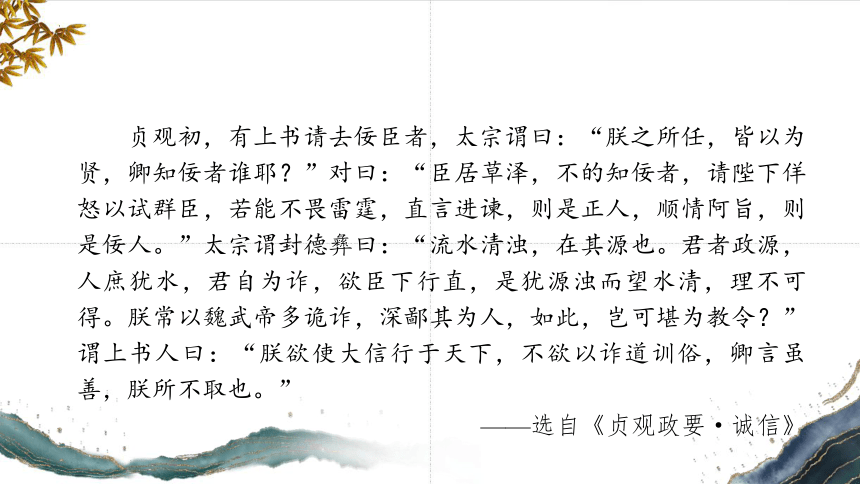 贞观初，有上书请去佞臣者，太宗谓曰：“朕之所任，皆以为
贤，卿知佞者谁耶？”对曰：“臣居草泽，不的知佞者，请陛下佯
怒以试群臣，若能不畏雷霆，直言进谏，则是正人，顺情阿旨，则
是佞人。”太宗谓封德彝曰：“流水清浊，在其源也。君者政源，
人庶犹水，君自为诈，欲臣下行直，是犹源浊而望水清，理不可
得。朕常以魏武帝多诡诈，深鄙其为人，如此，岂可堪为教令？”
谓上书人曰：“朕欲使大信行于天下，不欲以诈道训俗，卿言虽
善，朕所不取也。”
——选自《贞观政要·诚信》